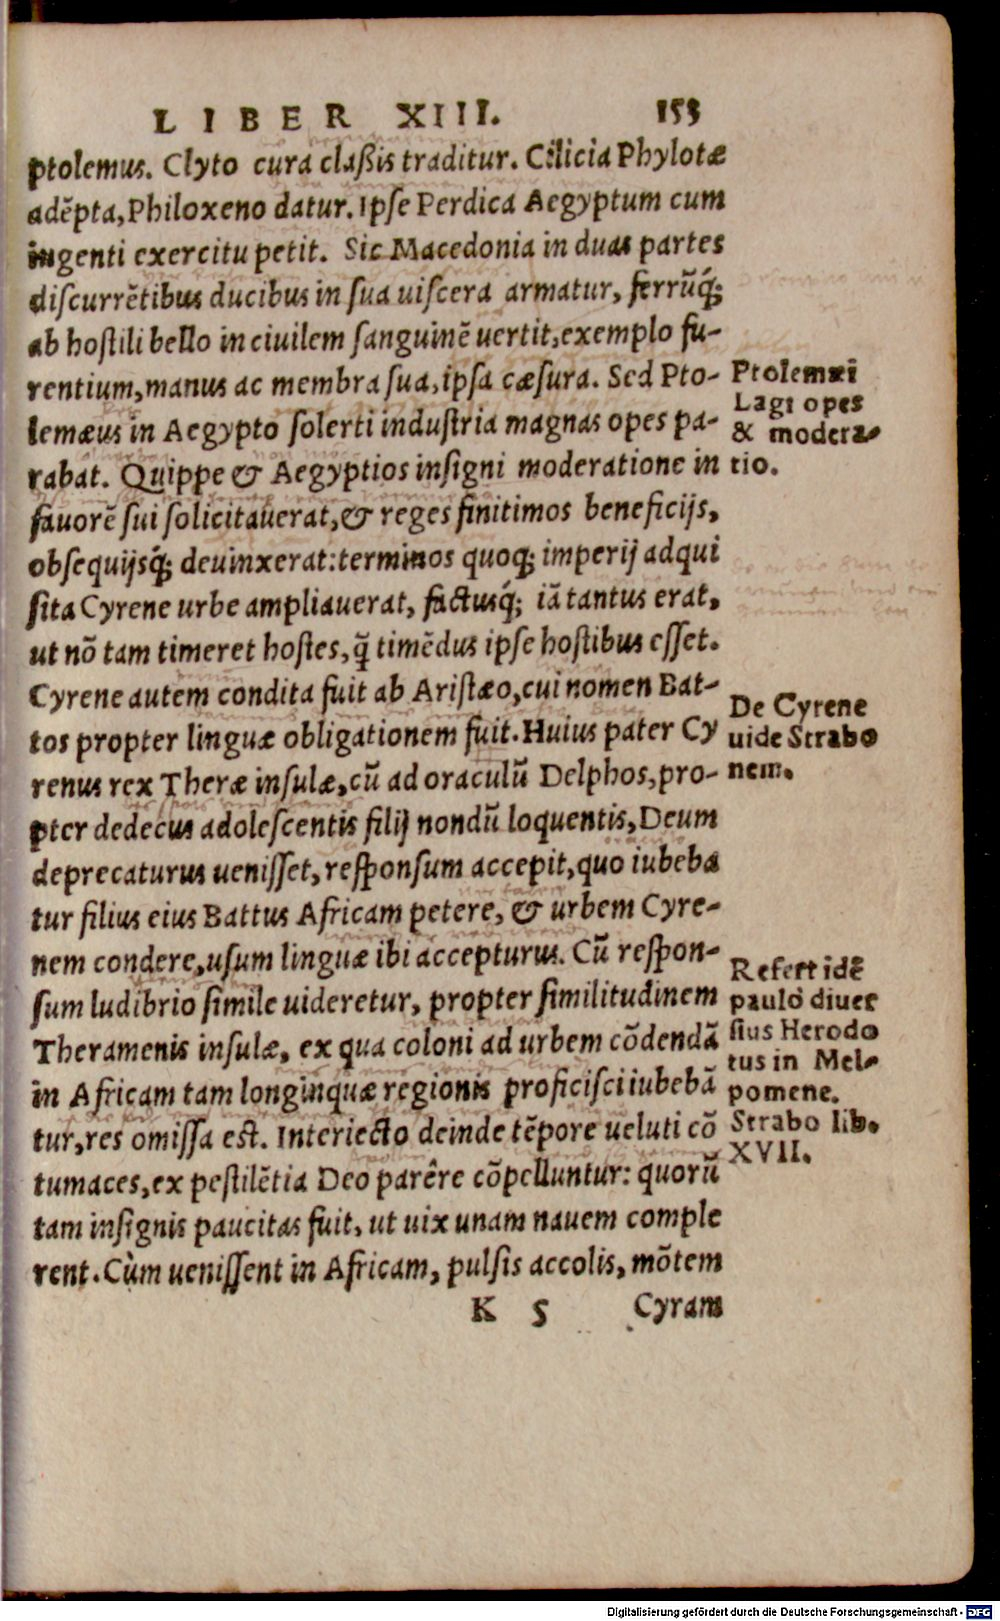 LIBER XIII. 153
ptolemus. Clyto cura claßis traditur. Cilicia Phylotæ
adẽpta, Philoxeno datur. Ipse Perdica Aegyptum cum
ingenti exercitu petit. Sic Macedonia in duas partes
discurrẽtibus ducibus in sua uiscera armatur, ferrũq́;
ab hostili bello in ciuilem sanguinẽ uertit, exemplo fu-
rentium, manus ac membra sua, ipsa cæsura. Sed Pto-
lemæus in Aegypto solerti industria magnas opes pa-
rabat. Quippe & Aegyptios insigni moderatione in
fauorẽ sui solicitauerat, & reges finitimos beneficijs,
obsequijsq́; deuinxerat: terminos quoq; imperij adqui
sita Cyrene urbe ampliauerat, factusq́; iã tantus erat,
ut nõ tam timeret hostes, q̃ timẽdus ipse hostibus esset.
Cyrene autem condita fuit ab Aristæo, cui nomen Bat-
tos propter linguæ obligationem fuit. Huius pater Cy
renus rex Theræ insulæ, cũ ad oraculũ Delphos, pro-
pter dedecus adolescentis filij nondũ loquentis, Deum
deprecaturus uenisset, responsum accepit, quo iubeba
tur filius eius Battus Africam petere, & urbem Cyre-
nem condere, usum linguæ ibi accepturus. Cũ respon-
sum ludibrio simile uideretur, propter similitudinem
Theramenis insulæ, ex qua coloni ad urbem cõdendã
in Africam tam longinquæ regionis proficisci iubebã
tur, res omissa est. Interiecto deinde tẽpore ueluti cõ
tumaces, ex pestilẽtia Deo parêre cõpelluntur: quorũ
tam insignis paucitas fuit, ut uix unam nauem comple
rent. Cùm uenissent in Africam, pulsis accolis, mõtem
K 5 Cyram
Ptolemæi
Lagi opes
& modera-
tio.
De Cyrene
uide Strabo
nem.
Refert idẽ
paulò diuer
sius Herodo
tus in Mel-
pomene.
Strabo lib.
XVII.
Digitalisierung gefördert durch die Deutsche Forschungsgemeinschaft - DFG